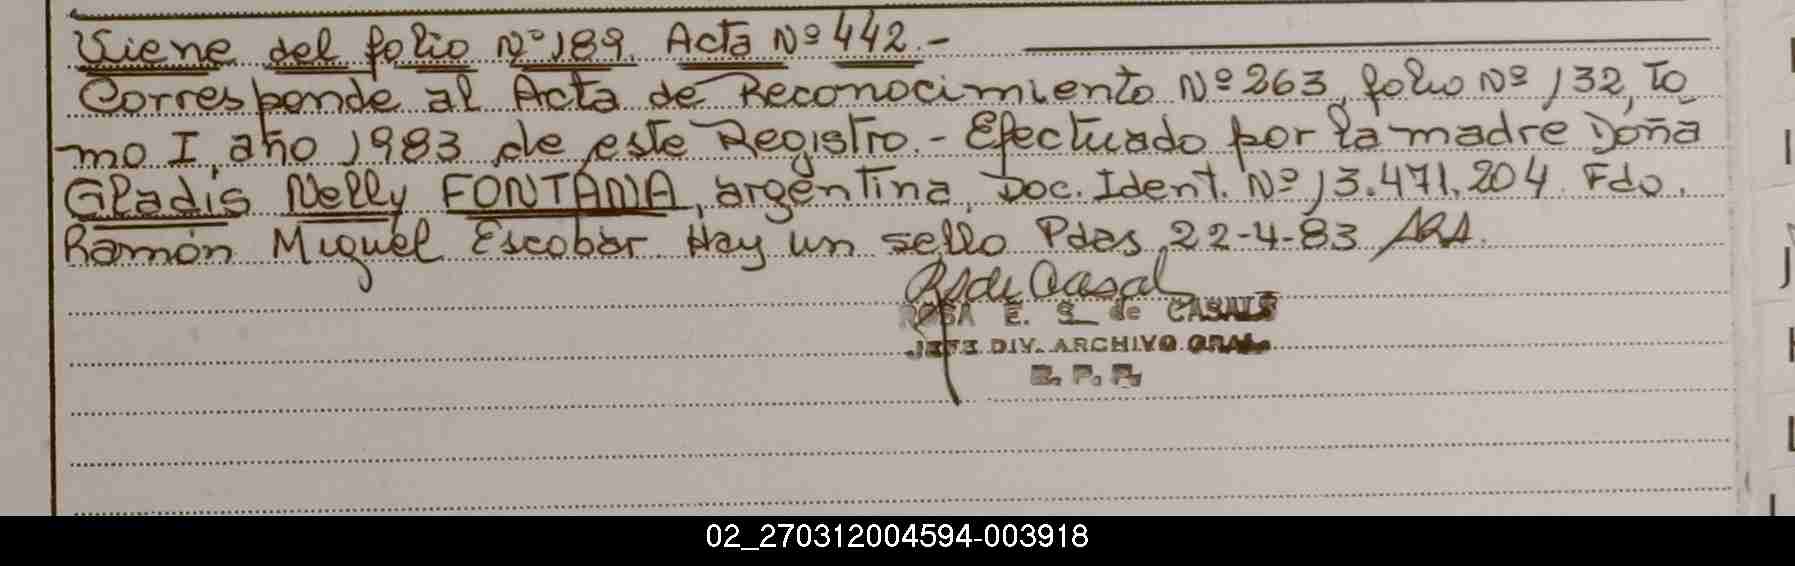 Viene del folio Nº 189. Acta Nº 442.-
Corresponde al Acta de Reconocimiento Nº 263, folio Nº 132, To
mo I, año 1983 de este Registro.- Efectuado por la madre Doña
Gladis Nelly FONTANA, argentina, Doc. Ident. Nº 13.471.204. Fdo.
Ramón Miguel Escobar. Hay un sello Pdas, 22-4-83 ARA.
ROSA E. S. de CASALS
JEFE DIV. ARCHIVO GRAL.
R. P. P.
02_270312004594-003918